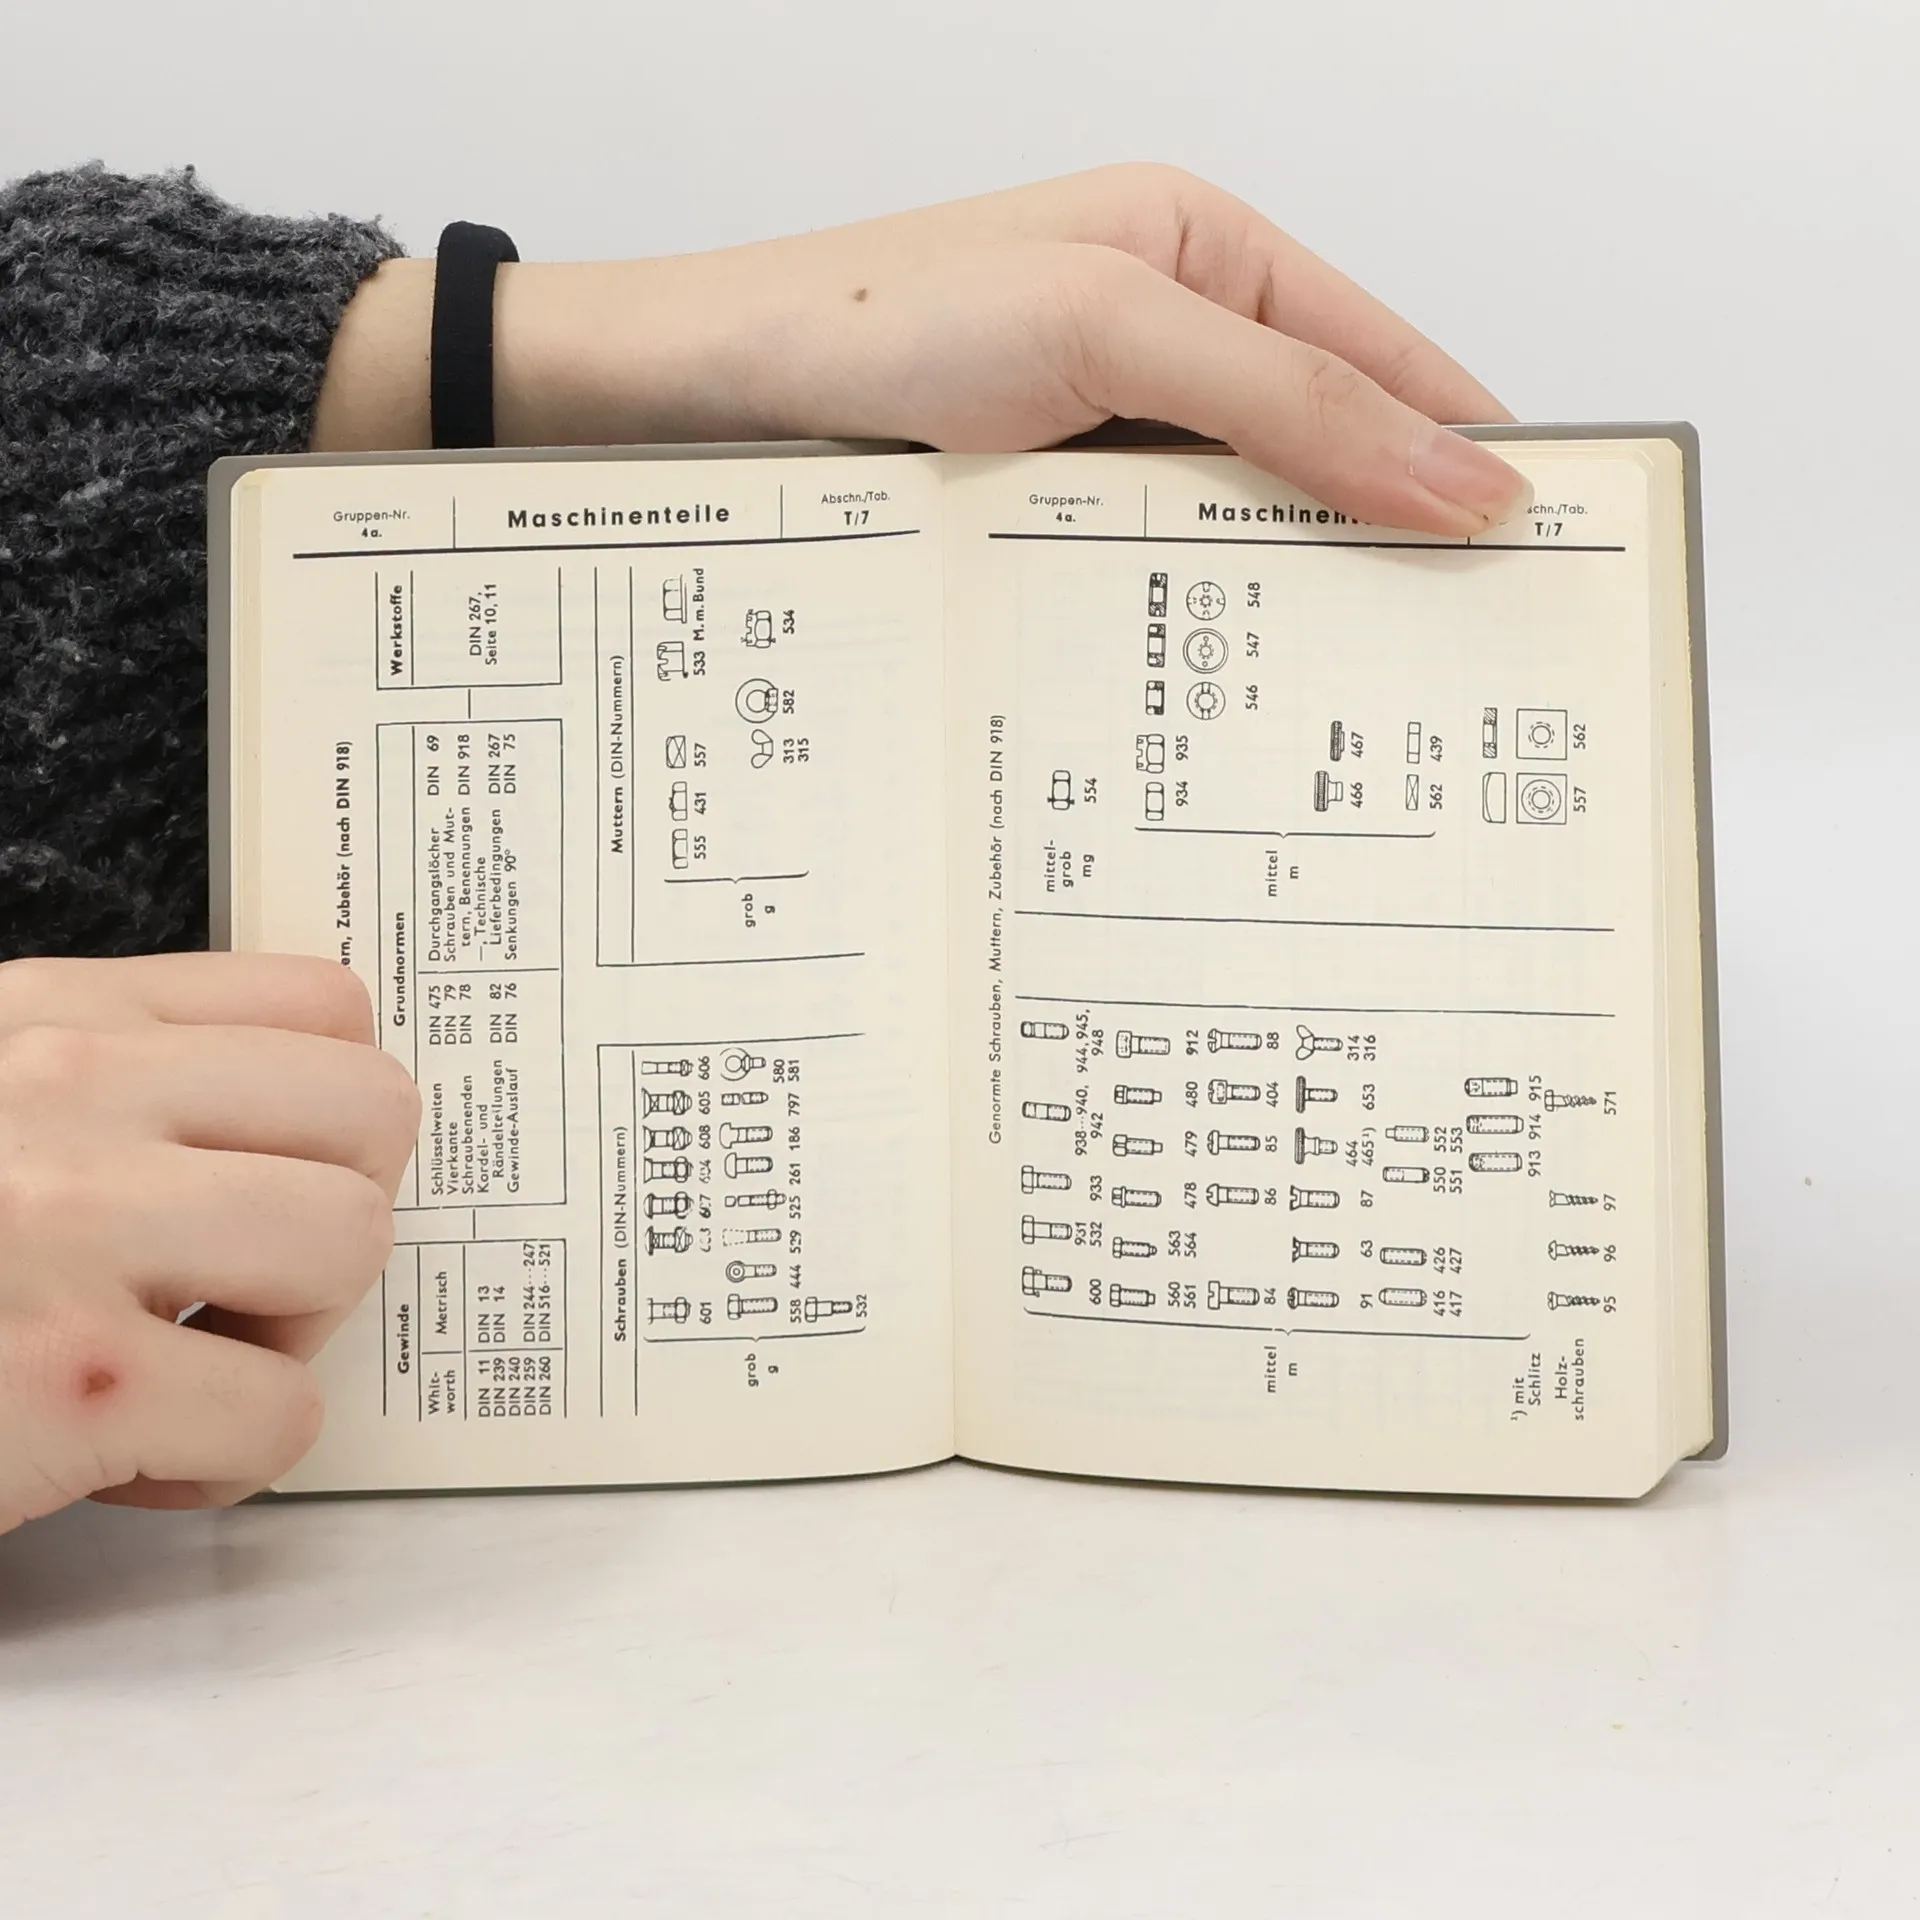 Gruppen-Nr.
4a.
Maschinenteile
Abschn./Tab.
T/7
ern, Zubehör (nach DIN 918)
Gewinde
Whit-
worth
Metrisch
DIN 11 DIN 13
DIN 239 DIN 14
DIN 240
DIN 259 DIN 244...247
DIN 260 DIN 516...521
Grundnormen
Schlüsselweiten DIN 475
Vierkante DIN 79
Schraubenenden DIN 78
Kordel- und
Rändelteilungen DIN 82
Gewinde-Auslauf DIN 76
Durchgangslöcher DIN 69
Schrauben und Mut-
tern, Benennungen DIN 918
—, Technische
Lieferbedingungen DIN 267
Senkungen 90° DIN 75
Werkstoffe
DIN 267,
Seite 10, 11
Schrauben (DIN-Nummern)
grob
g
601 604 608 605 606
558 444 529 525 261 186 797 580
581
532
Muttern (DIN-Nummern)
grob
g
555 431 557 533 M.m.Bund
313 582 534
315
Gruppen-Nr.
4a.
Maschinen
schn./Tab.
T/7
Genormte Schrauben, Muttern, Zubehör (nach DIN 918)
mittel
m
600 931 933 938...940, 944, 945,
532 942 948
560 563 478 479 480 912
561 564
84 86 85 404 88
91 63 87 464 653 314
465¹) 316
416 426 550 552
417 427 551 553
913 914 915
¹) mit
Schlitz
Holz-
schrauben
95 96 97 571
mittel-
grob
mg
554
mittel
m
934 935 546 547 548
466 467
562 439
557 562